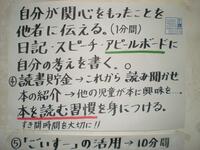 自分が関心をもったことを
他者に伝える。(1分間)
日記・スピーチ・アピールボードに
自分の考えを書く。
④読書貯金→これから読み聞かせ
本の紹介→他の児童が本に興味を…
本を読む習慣を身につける。
すき間時間を大切に!!
⑤「ごいすー」の活用→10分間